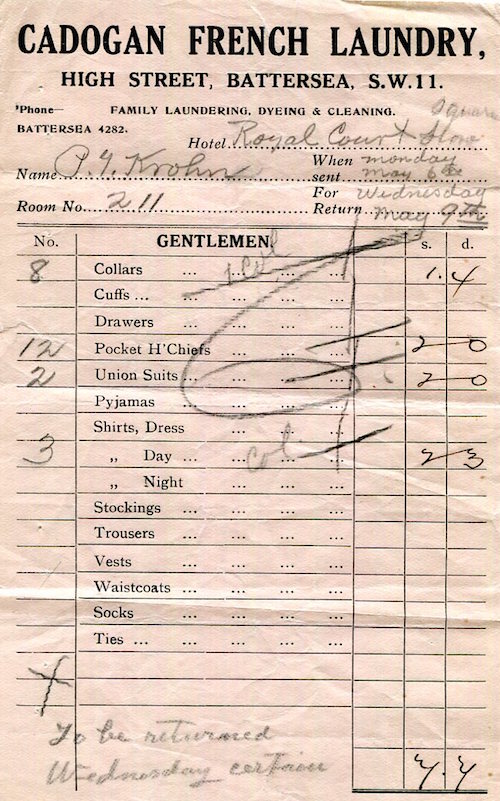 CADOGAN FRENCH LAUNDRY,
HIGH STREET, BATTERSEA, S.W.11.
'Phone— FAMILY LAUNDERING, DYEING & CLEANING.
BATTERSEA 4282.
Square
Hotel Royal Court
Name P. G. Krohn When sent monday May 6th
Room No. 211 For Return Wednesday May 9th
No. GENTLEMEN. s. d.
8 Collars ... 1 Col ... 1. 4
Cuffs ... ... ... ...
Drawers ... ... ...
12 Pocket H'Chiefs ... ... 2 0
2 Union Suits ... ... ... 2 0
Pyjamas ... ... ...
Shirts, Dress
3 „ Day ... col ... ... 2 3
„ Night ... ... ...
Stockings ... ... ...
Trousers ... ... ...
Vests ... ... ...
Waistcoats ... ... ...
Socks ... ... ...
Ties ... ... ... ...
To be returned
Wednesday certain
7. 7